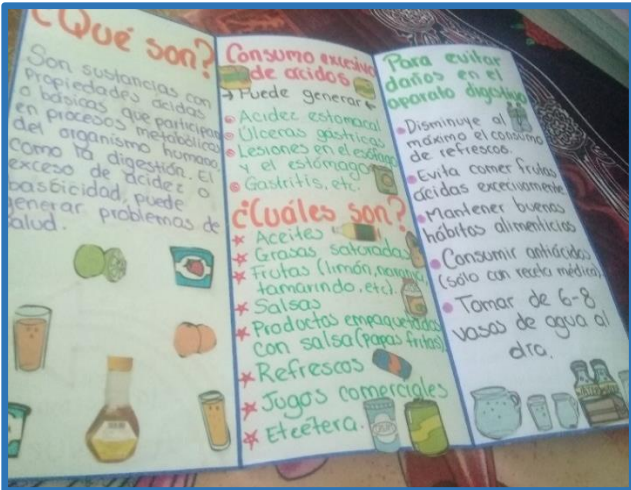 ¿Qué son?
Son sustancias con
propiedades ácidas
o básicas que participan
en procesos metabólicos
del organismo humano,
como la digestión. El
exceso de acidez o
basicidad, puede
generar problemas de
salud.
Consumo excesivo
de ácidos
→ Puede generar ←
Acidez estomacal
Úlceras gástricas
Lesiones en el esófago
y el estómago
Gastritis, etc.
¿Cuáles son?
Aceites
Grasas saturadas
Frutas (limón, naranja,
tamarindo, etc).
Salsas
Productos empaquetados
con salsa (papas fritas)
Refrescos
Jugos comerciales
Etcétera.
Para evitar
daños en el
aparato digestivo
Disminuye al
máximo el consumo
de refrescos.
Evita comer frutas
ácidas excecivamente
Mantener buenos
hábitos alimenticios
Consumir antiácidos
(sólo con receta médica)
Tomar de 6-8
vasos de agua al
día.